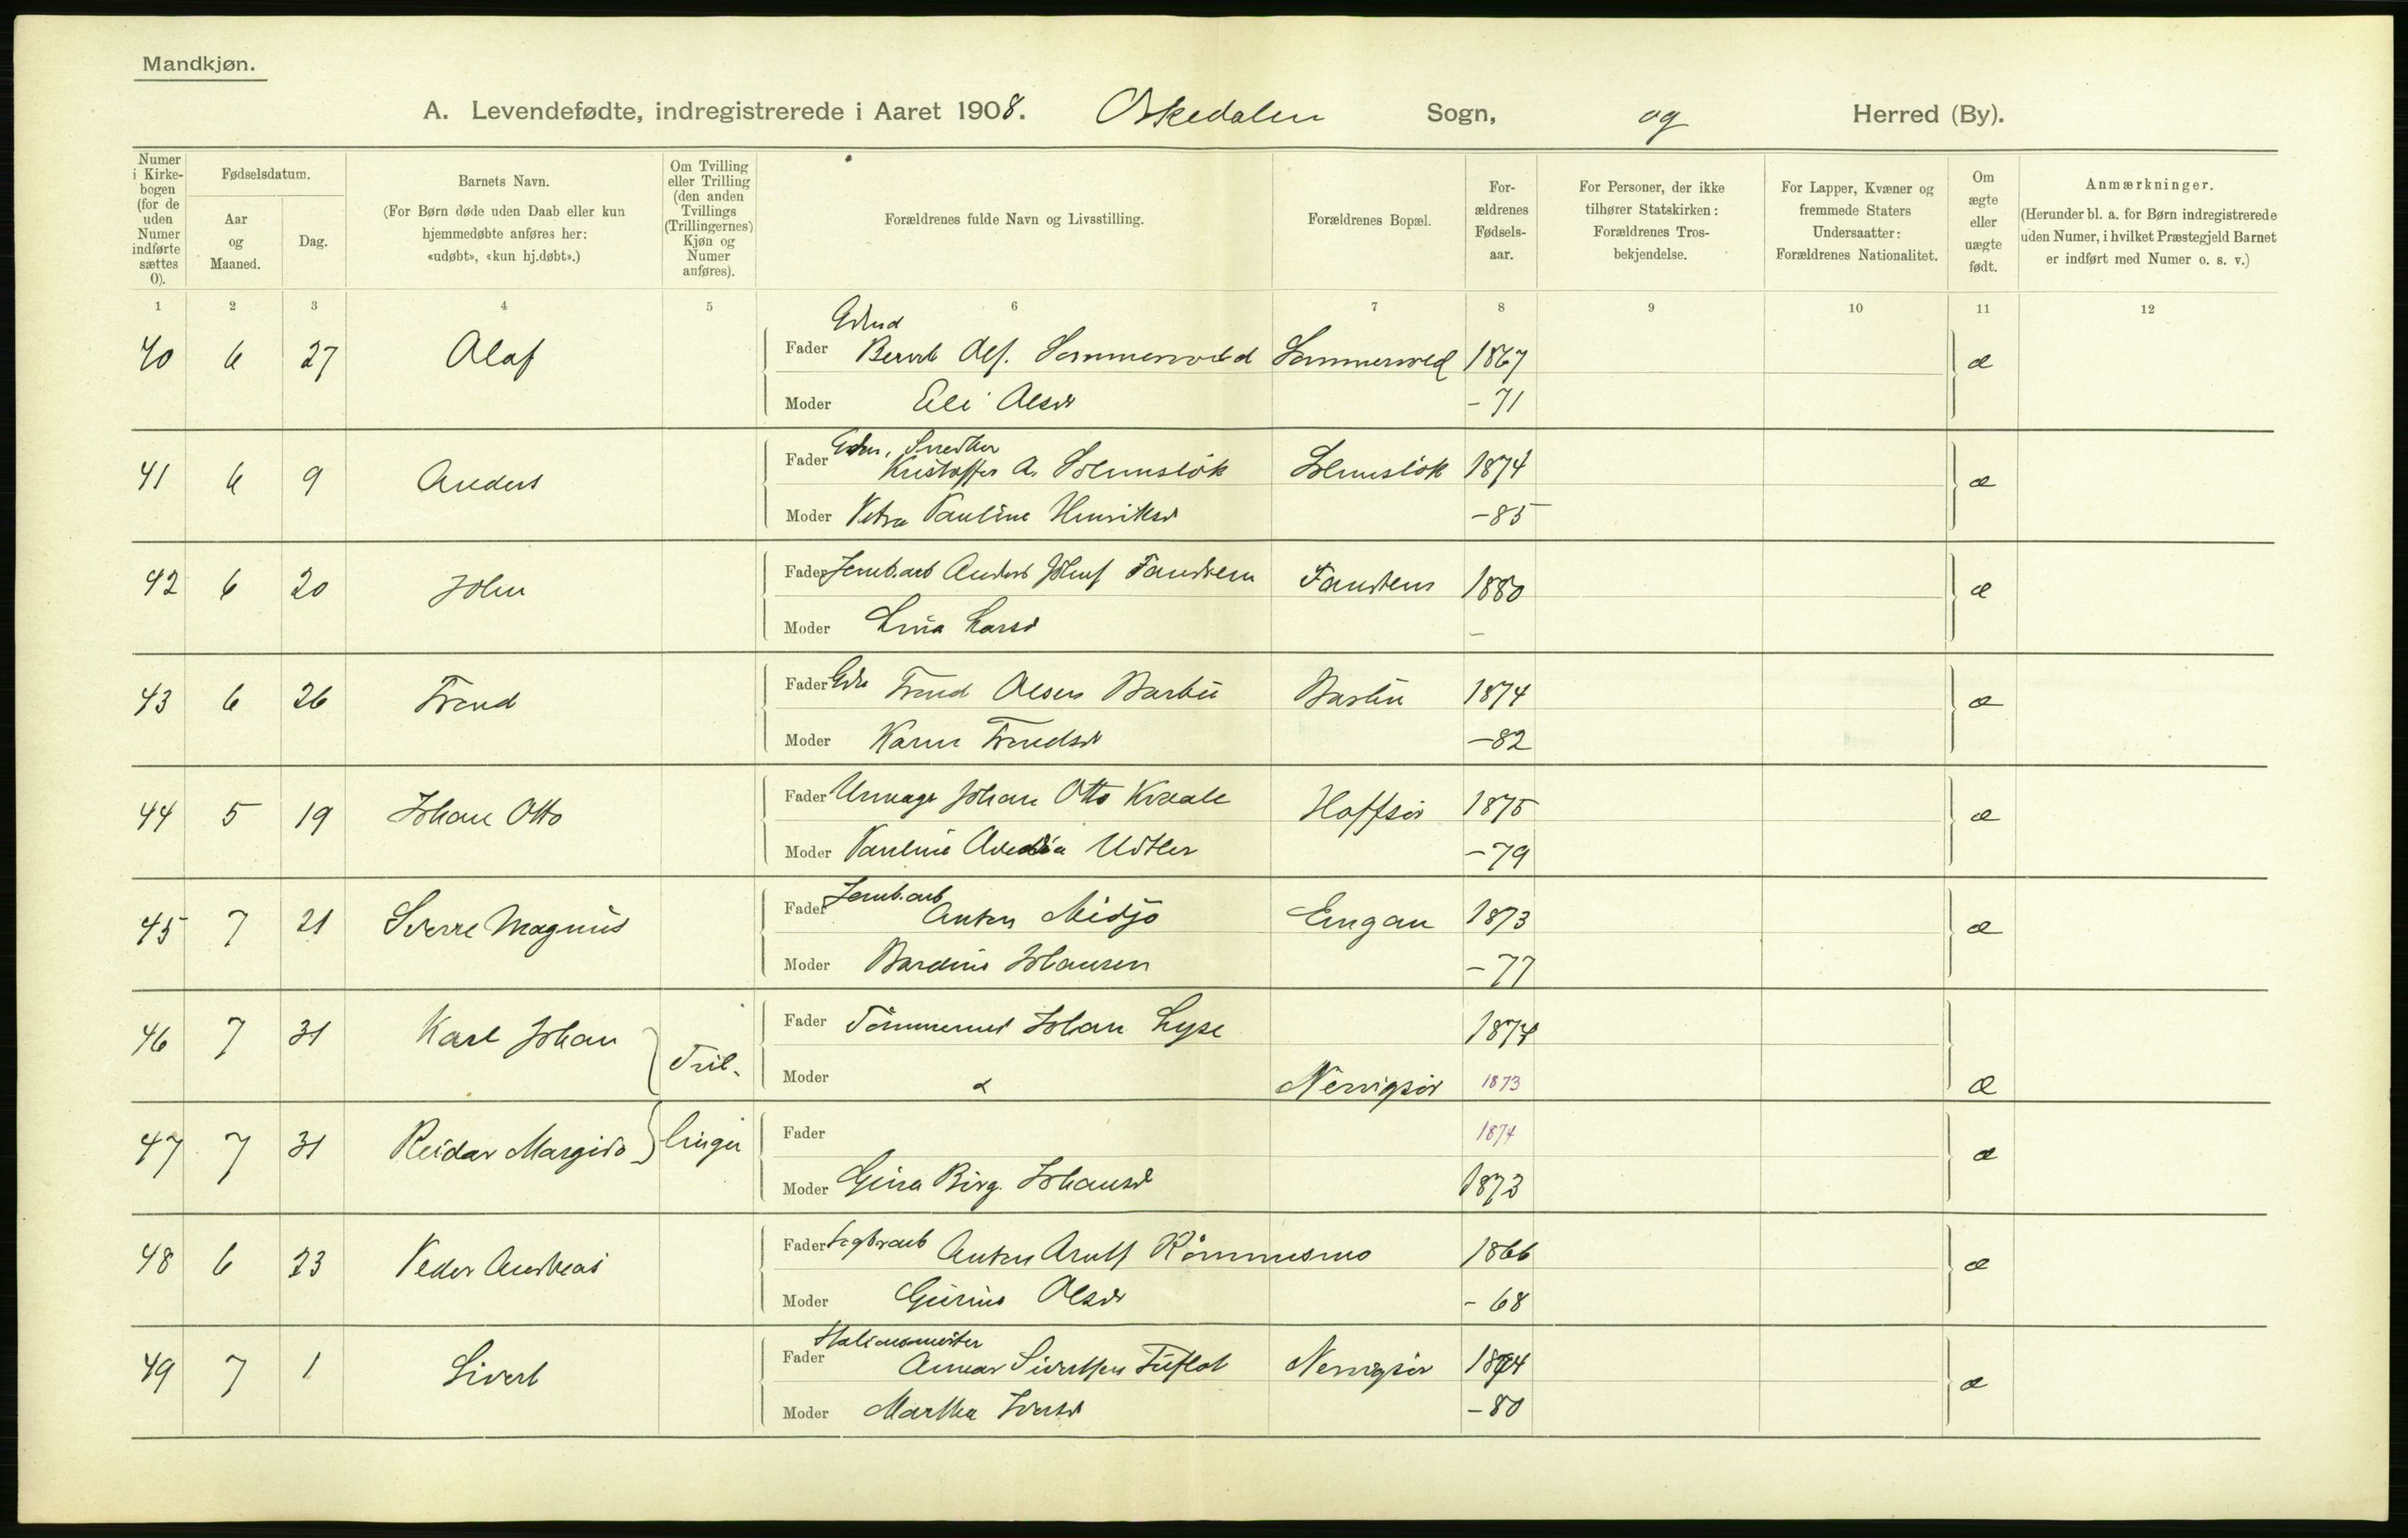 Mandkjøn.
A. Levendefødte, indregistrerede i Aaret 1908. Orkedalen Sogn, og Herred (By).
Numer i Kirkebogen (for de uden Numer indførte sættes 0).
Fødselsdatum.
Aar og Maaned.
Dag.
Barnets Navn.
(For Børn døde uden Daab eller kun hjemmedøbte anføres her: «udøbt», «kun hj.døbt».)
Om Tvilling eller Trilling (den anden Tvillings (Trillingernes) Kjøn og Numer anføres).
Forældrenes fulde Navn og Livsstilling.
Forældrenes Bopæl.
Forældrenes Fødselsaar.
For Personer, der ikke tilhører Statskirken: Forældrenes Trosbekjendelse.
For Lapper, Kvæner og fremmede Staters Undersaatter: Forældrenes Nationalitet.
Om ægte eller uægte født.
Anmærkninger.
(Herunder bl. a. for Børn indregistrerede uden Numer, i hvilket Præstegjeld Barnet er indført med Numer o. s. v.)
1 2 3 4 5 6 7 8 9 10 11 12
40 6 27 Olaf Fader Bernt Alf. Sommervold Sommervold 1867 æ
Moder Eli Olsd - 71
41 6 9 Anders Fader Kristoffer A. Solemsløk Solemsløk 1874 æ
Moder Petra Pauline Henriksd - 85
42 6 20 John Fader Jernb.arb Anders Johns 1880 æ
Moder Lina Larsd -
43 6 26 Trond Fader Trond Olsen Barbu Barbu 1874 æ
Moder Karen Trondsd - 82
44 5 19 Johan Otto Fader Urmager Johan Otto Kvaale Hoffsør 1875 æ
Moder Pauline - 79
45 7 21 Sverre Magnus Fader Jernb.arb
Anton Midjo Engan 1873 æ
Moder Johansen - 77
46 7 31 Karl Johan Tril- Fader Tømmermd Johan Lyse 1874
Moder Nervigsør 1873 æ
47 7 31 Reidar Margido linger Fader 1874 æ
Moder Gina Birg. Johansd 1873
48 6 23 Peder Andreas Fader Anton Arntf Rømmesmo 1866 æ
Moder Olsd - 68
49 7 1 Sivert Fader Stationsmester
Sivertsen Tuflot Nervigsør 1874 æ
Moder Martha Iversd - 80